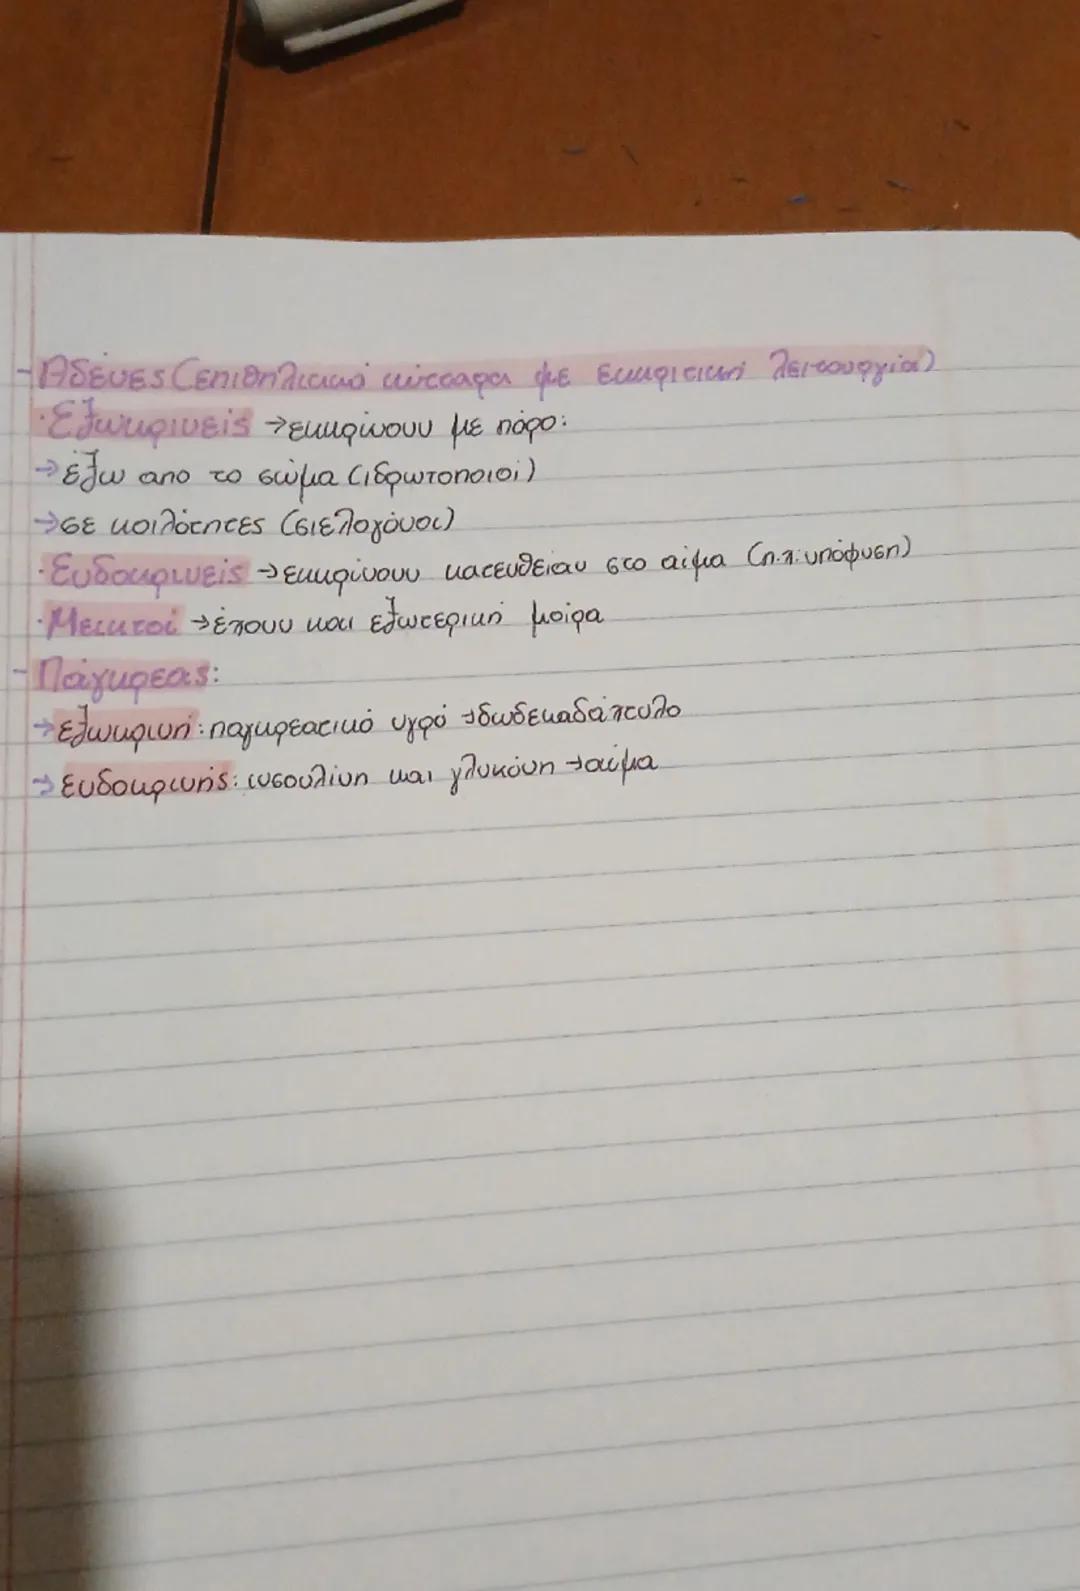 - Αδένες (επιθηλιακά κύτταρα με εκκριτική λειτουργία)
· Εξωκρινείς → εκκρίνουν με πόρο:
→ έξω απο το σώμα (ιδρωτοποιοί)
→ σε κοιλότητες (σιελογόνοι)
· Ενδοκρινείς → εκκρίνουν κατευθείαν στο αίμα (π.χ. υπόφυση)
· Μεικτοί → έχουν και εξωτερική μοίρα
- Πάγκρεας:
→ εξωκρινή: παγκρεατικό υγρό → δωδεκαδάχτυλο
→ ενδοκρινής: ινσουλίνη και γλυκόνη → αίμα